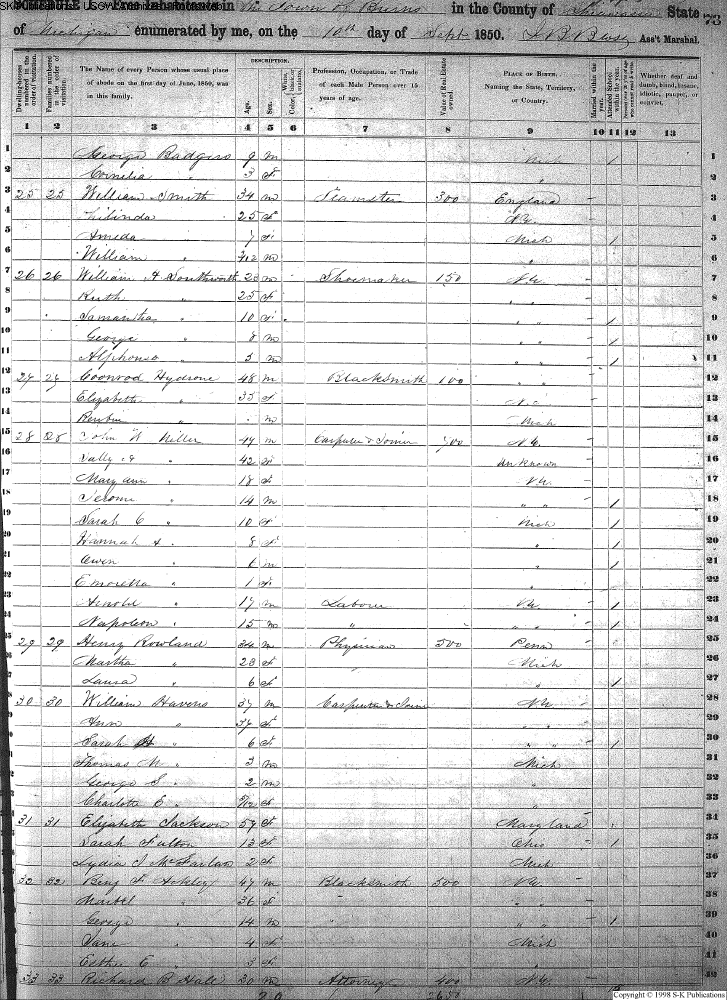 SCHEDULE I. Free Inhabitants in the Town of Burns in the County of Shiawassee State
of Michigan enumerated by me, on the 10th day of Sept 1850. Ass't Marshal. 73
Dwelling-houses numbered in the order of visitation.
Families numbered in the order of visitation.
The Name of every Person whose usual place of abode on the first day of June, 1850, was in this family.
DESCRIPTION.
Age.
Sex.
Color,
Profession, Occupation, or Trade of each Male Person over 15 years of age.
Value of Real Estate owned.
PLACE OF BIRTH. Naming the State, Territory, or Country.
Married within the year.
Attended School within the year.
Whether deaf and dumb, blind, insane, idiotic, pauper, or convict.
1 2 3 4 5 6 7 8 9 10 11 12 13
1 George Badgero 9 m Mich / 1
2 Cornelia " 3 f " 2
3 25 25 William Smith 34 m Teamster 300 England 3
4 " 25 f N.Y. 4
5 Ameda " 7 f Mich / 5
6 William " 3/12 m " 6
7 26 26 William A Southworth m Shoemaker 150 N.Y. 7
8 Ruth " 25 f " " 8
9 Samantha " 10 f " " / 9
10 George " 8 m " " / 10
11 Alphonso " 5 m " " / 11
12 27 27 Coonrod Hydrone 48 m Blacksmith 100 " " 12
13 Elizabeth " 35 f 13
14 Rubin " m Mich 14
15 28 28 John W Miller 44 m Carpenter & Joiner N.Y. 15
16 Sally " 42 f Unknown 16
17 Mary Ann " 18 f N.Y. 17
18 Jerome " 14 m " " / 18
19 Sarah C " 10 f Mich / 19
20 Hannah A " 8 f " / 20
21 Owen " 6 m " / 21
22 Emoretta " 1 f " 22
23 Arnold " 17 m Labour N.Y. / 23
24 Napoleon " 15 m " " " / 24
25 29 29 Henry Rowland 34 m Physician 500 Penn 25
26 Martha " 28 f Mich 26
27 Laura " 6 f " / 27
28 30 30 William Havens 37 m Carpenter & Joiner N.Y. 28
29 Ann " 34 f " " 29
30 Sarah " 6 f " " / 30
31 Thomas M " 3 m Mich 31
32 George S " 2 m " 32
33 Charlotte E " f " 33
34 31 31 Elizabeth Jackson 59 f Maryland 34
35 Sarah Fulton 13 f Ohio / 35
36 Lydia J McFarlan 2 f Mich 36
37 32 32 Benj F Ashley 47 m Blacksmith 500 N.Y. 37
38 Mabel " 36 f " " 38
39 George " 14 m " " / 39
40 Jane " 4 f Mich 40
41 Esther E " 3 f " 41
42 33 33 Richard B Hall 30 m Attorney 400 N.Y. 42
Copyright © 1998 S-K Publications